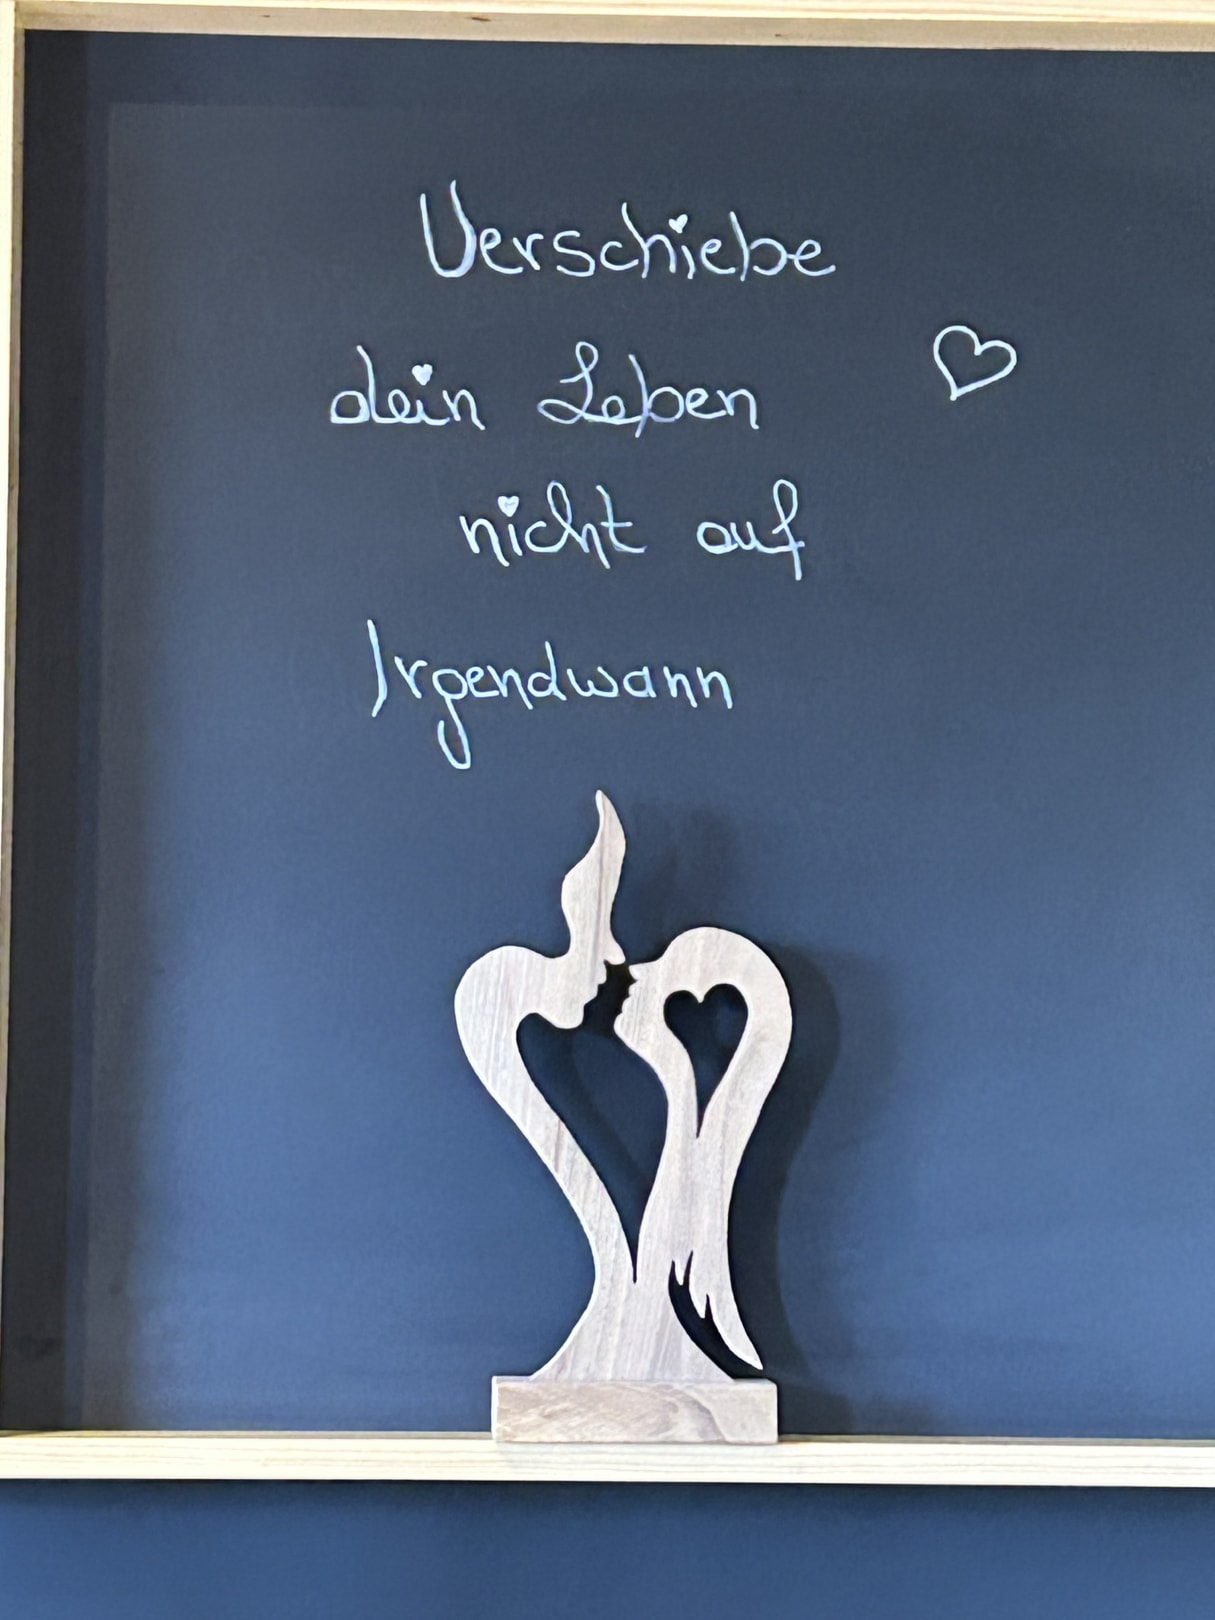 Verschiebe
dein Leben
nicht auf
Irgendwann